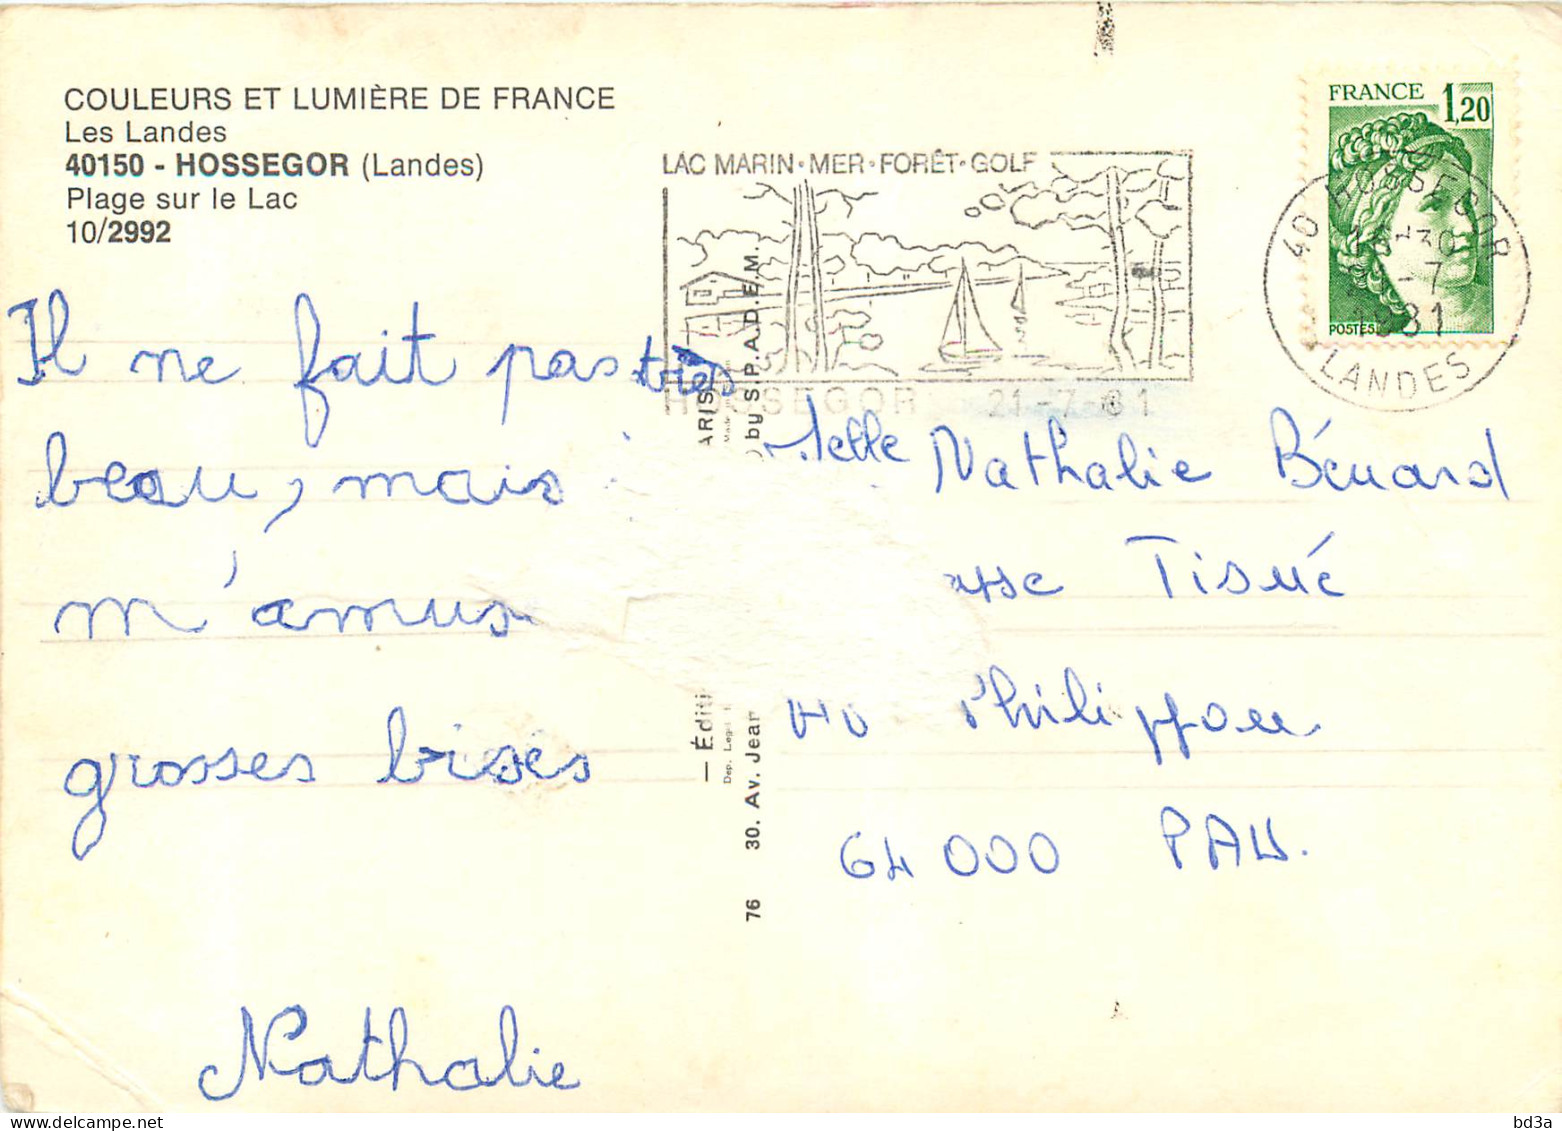 COULEURS ET LUMIÈRE DE FRANCE
Les Landes
40150 - HOSSEGOR (Landes)
Plage sur le Lac
10/2992
LAC MARIN · MER · FORÊT · GOLF
HOSSEGOR 21-7-81
FRANCE 1,20
POSTES
40 HOSSEGOR
-7
1981
LANDES
Il ne fait pas très
beau, mais
m'amus
grosses bises
Nathalie
elle Nathalie Bénard
Tisné
Philippon
64 000 PAU.
ARIS
by S.P.A.D.E.M.
— Éditi
Dep. Legal
76 30. Av. Jean
bd3a